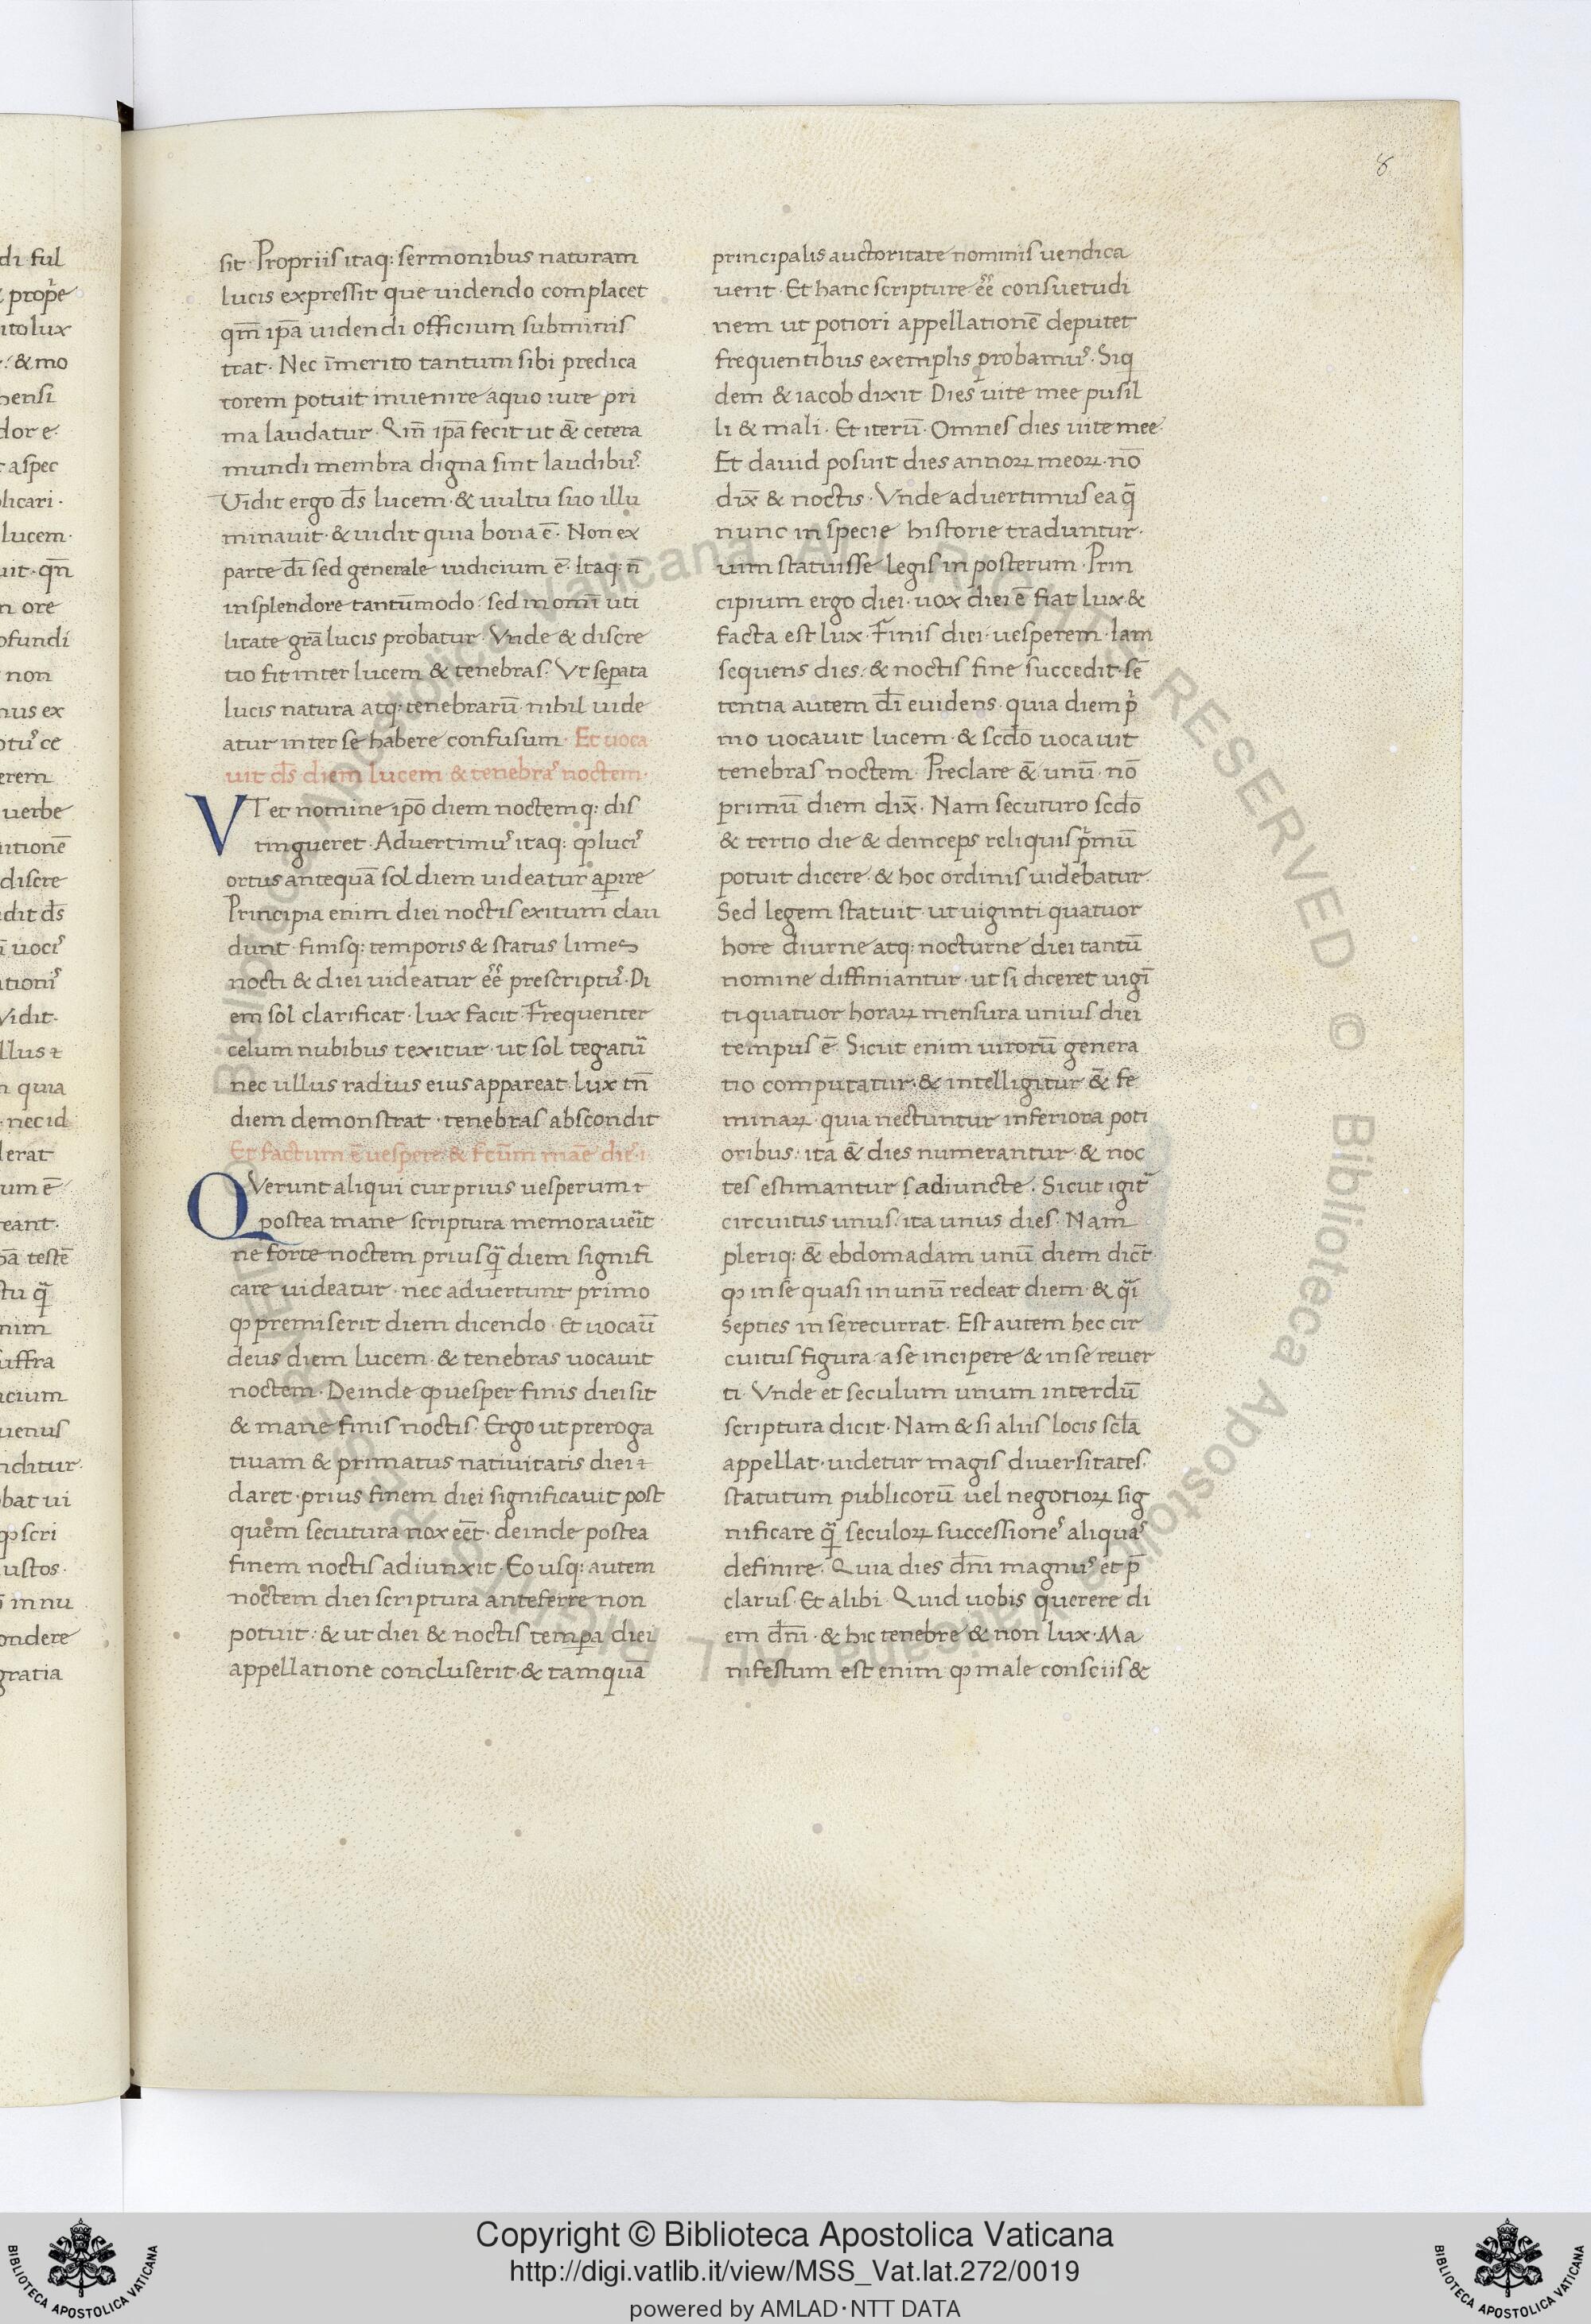 8
di ful
prop̄e
ito lux
& mo
hensi
dor e
aspec
licari ·
lucem ·
uit · qn̄
n ore
ofundi
non
nus ex
otuˀ ce
erem
uerbe
itionē
discre
dit ds̄
uociˀ
ationiˀ
Vidit ·
llus
quia
nec id
lerat
um ē
eant ·
testē
tu
nim
uffra
icium
uenus
nditur ·
bat ui
scri
ustos ·
in nu
ondere
gratia
sit · Propriis itaq: sermonibus naturam
lucis expressit que uidendo complacet
qm̄ ip̄a uidendi officium subminis
trat · Nec īmerito tantum sibi predica
torem potuit inuenire a quo iure pri
ma laudatur · Qm̄ ip̄a fecit ut &̄ cetera
mundi membra digna sint laudibuˀ ·
Uidit ergo ds̄ lucem · & uultu suo illu
minauit · & uidit quia bona ē · Non ex
parte dī sed generale iudicium ē · Itaq: n̄
in splendore tantūmodo · sed in omī uti
litate gr̄a lucis probatur · Vnde & discre
tio fit inter lucem & tenebras · Ut seꝑata
lucis natura atq: tenebrarū · nihil uide
atur inter se habere confusum · Et uoca
uit ds̄ diem lucem & tenebraˀ noctem ·
VT et nomine ip̄o diem noctemq: dis
tingueret · Aduertimuˀ itaq: ꝙ luciˀ
ortus antequā sol diem uideatur aꝑire
Principia enim diei noctis exitum clau
dunt · finisq: temporis & status limes
nocti & diei uideatur eē̄ prescriptuˀ · Di
em sol clarificat · lux facit · Frequenter
celum nubibus texitur · ut sol tegatu᷑
nec ullus radius eius appareat · lux tn̄
diem demonstrat · tenebras abscondit
Et factum ē uespere & fcūm mae̅ dieˀ · i
QVerunt aliqui cur prius uesperum ⁊
postea mane scriptura memorauēit ·
ne forte noctem priusꝙ̄ diem signifi
care uideatur · nec aduertunt primo
ꝙ premiserit diem dicendo · Et uocau̅
deus diem lucem · & tenebras uocauit
noctem · Deinde ꝙ uesper finis diei sit
& mane finis noctis · Ergo ut preroga
tiuam & primatus natiuitatis diei ⁊
daret · prius finem diei significauit post
quem secutura nox eēt · deinde postea
finem noctis adiunxit · Eo usq: autem
noctem diei scriptura anteferre non
potuit · & ut diei & noctis temꝑa diei
appellatione concluserit · & tamquā
principalis auctoritate nominis uendica
uerit · Et hanc scripture eē̄ consuetudi
nem ut potiori appellationē deputet
frequentibus exemplis probamuˀ · Siq
dem & iacob dixit · Dies uite mee pusil
li & mali · Et iterū · Omnes dies uite mee ·
Et dauid posuit dies annoꝝ meoꝝ · nō
dix̄ & noctis · Vnde aduertimus ea q̄
nunc in specie historie traduntur ·
uim statuisse legis in posterum · Prin
cipium ergo diei · uox diei ē fiat lux · &
facta est lux · Finis diei · uesperem · Iam
sequens dies · & noctis fine succedit · sē
tentia autem dī euidens · quia diem pⁱ
mo uocauit lucem · & scd̄o uocauit
tenebras noctem · Preclare &̄ unū · nō
primū diem dix̄ · Nam secuturo scd̄o
& tertio die & deinceps reliquis pⁱmū
potuit dicere · & hoc ordinis uidebatur ·
Sed legem statuit · ut uiginti quatuor
hore diurne atq: nocturne diei tantū
nomine diffiniantur · ut si diceret uigī
ti quatuor horaꝝ mensura unius diei
tempus ē · Sicut enim uirorū genera
tio computatur · & intelligitur &̄ fe
minaꝝ · quia nectuntur inferiora poti
oribus · ita &̄ dies numerantur · & noc
tes estimantur s adiuncte · Sicut igit᷑
circuitus unus · ita unus dies · Nam
pleriq: &̄ ebdomadam unū diem dic̄t
ꝙ in se quasi in unū redeat diem · & qᷓi
septies in se recurrat · Est autem hec cir
cuitus figura · a se incipere & in se reuer
ti · Vnde et seculum unum interdū
scriptura dicit · Nam & si aliis locis scl̄a
appellat · uidetur magis diuersitates ·
statutum publicorū uel negotioꝝ sig
nificare qᷓ seculoꝝ successioneˀ aliquaˀ
definire · Quia dies dn̄i magnuˀ et p̄
clarus · Et alibi · Quid uobis querere di
em dn̄i · & hic tenebre & non lux · Ma
nifestum est enim ꝙ male consciis &
Copyright © Biblioteca Apostolica Vaticana
http://digi.vatlib.it/view/MSS_Vat.lat.272/0019
powered by AMLAD·NTT DATA
BIBLIOTECA APOSTOLICA VATICANA
BIBLIOTECA APOSTOLICA VATICANA